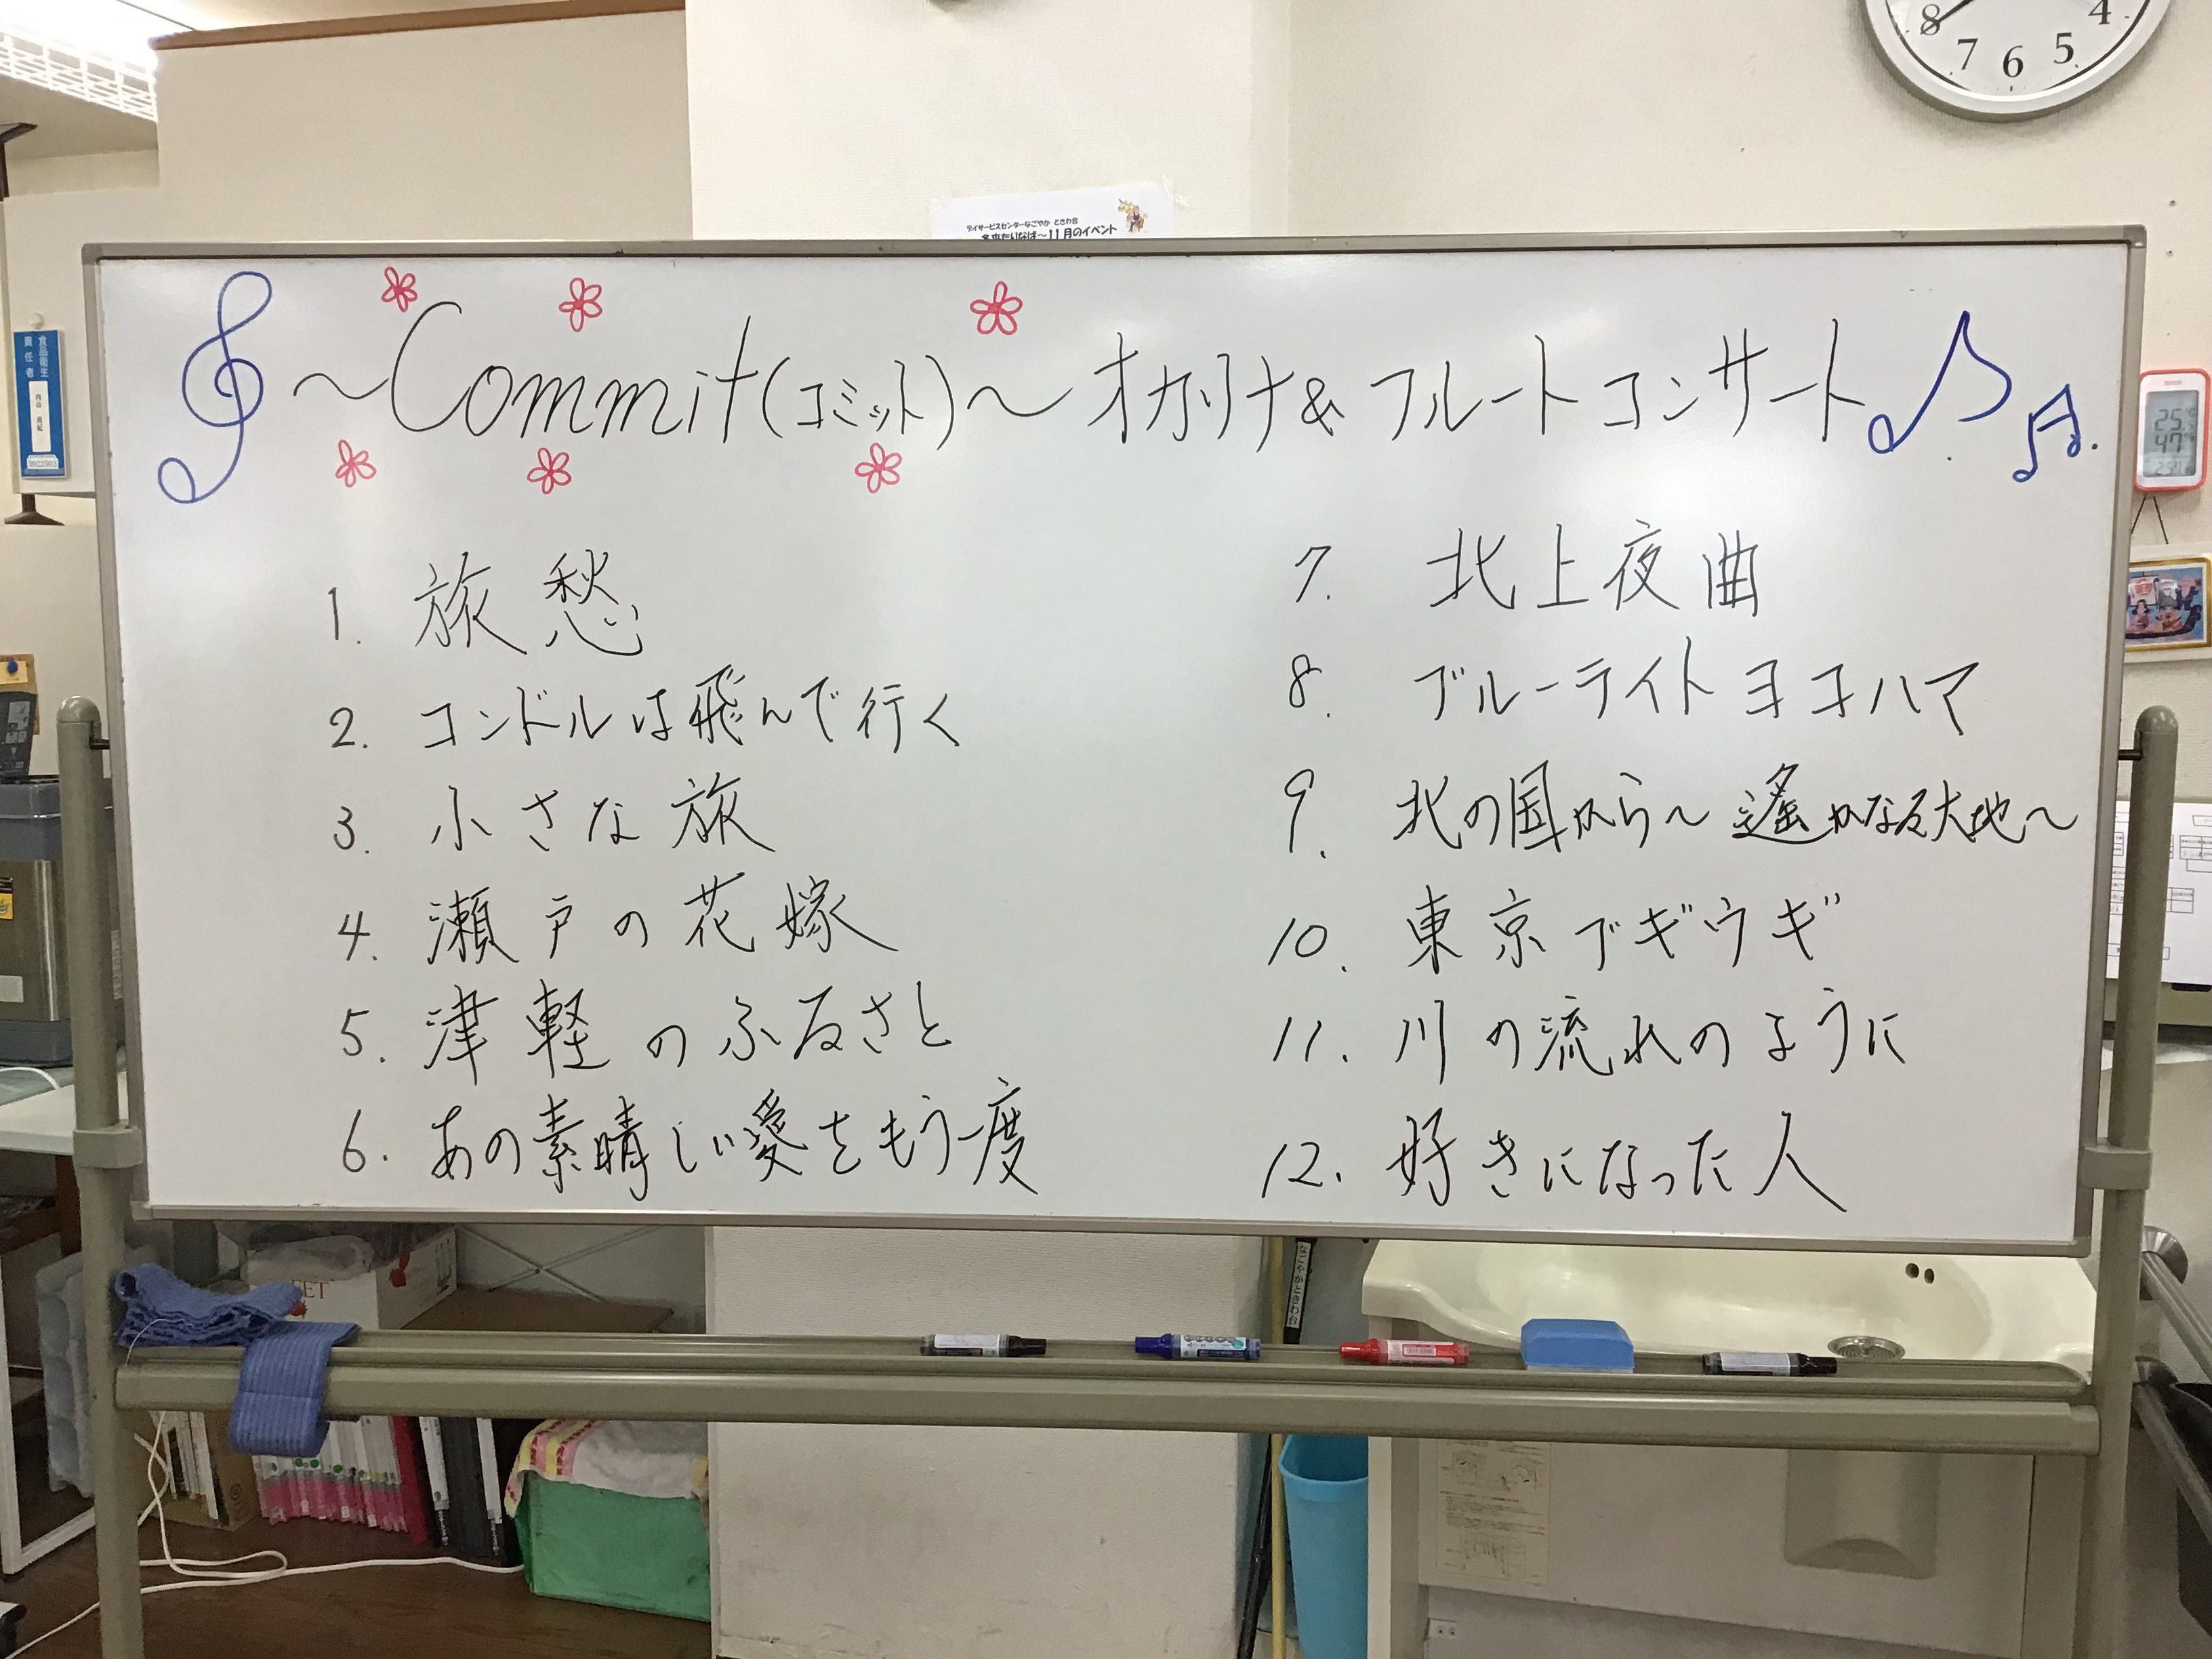 デイサービスセンターなごやか ときわ台
冬来たりなば～11月のイベント
～Commit(コミット)～ オカリナ& フルート コンサート
1. 旅愁
2. コンドルは飛んで行く
3. 小さな旅
4. 瀬戸の花嫁
5. 津軽のふるさと
6. あの素晴しい愛をもう一度
7. 北上夜曲
8. ブルーライト ヨコハマ
9. 北の国から～遙かなる大地～
10. 東京ブギウギ
11. 川の流れのように
12. 好きになった人
8 7 6 5 4
食品衛生
責任者
25
47
なごやかときわ台